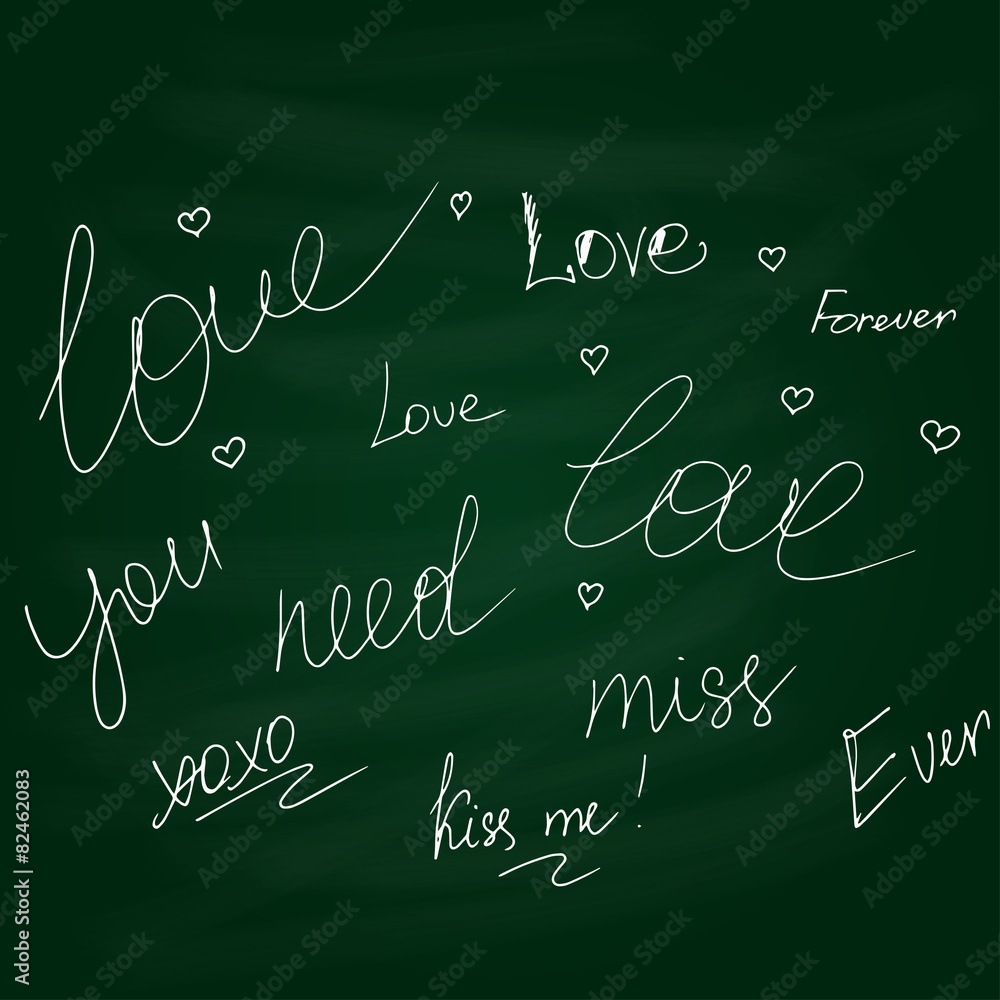 love
Love
Forever
Love
love
you
need
miss
xoxo
Kiss me!
Ever
Adobe Stock | #82462083
Adobe Stock